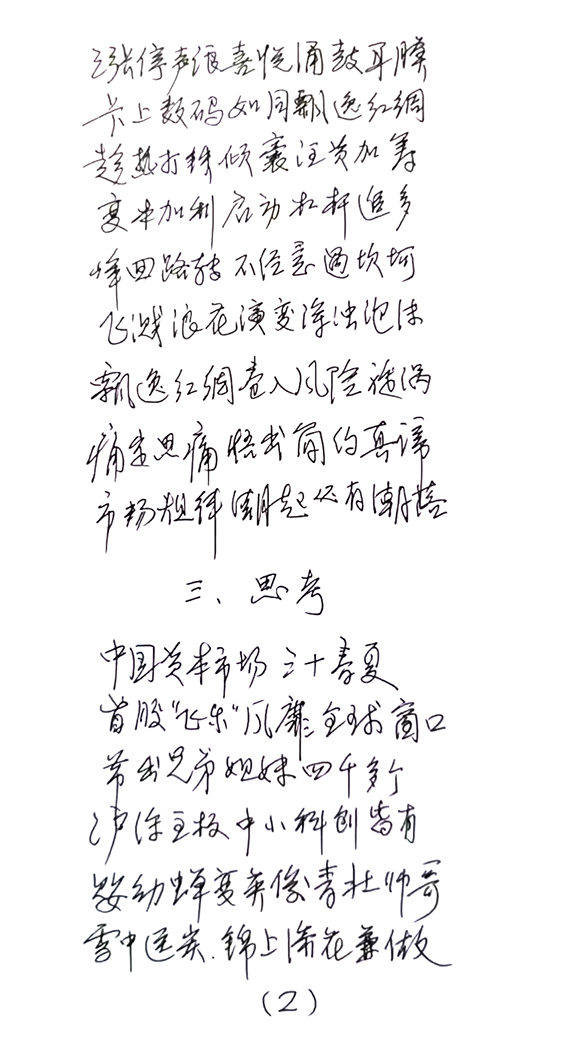 涨停声浪喜悦涌鼓耳膜
卡上数码如同飘逸红绸
趁热打铁倾囊注资加筹
变本加利启动杠杆追多
峰回路转不经意遇坎坷
飞溅浪花演变浑浊泡沫
飘逸红绸卷入风险漩涡
痛定思痛悟出简约真谛
市场规律潮起必有潮落
三、思考
中国资本市场三十春夏
首股"飞乐"风靡全球窗口
带出兄弟姐妹四千多个
沪深主板中小科创皆有
婴幼蝉变英俊青壮帅哥
雪中送炭、锦上添花兼做
(2)